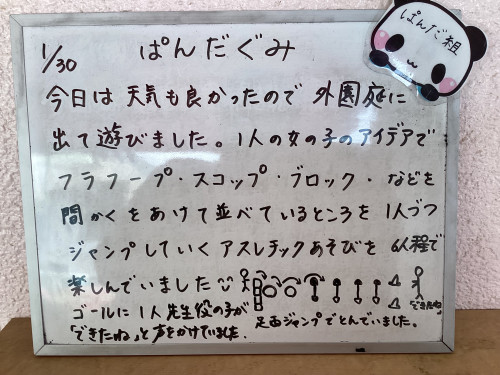 ぱんだ組
1/30 ぱんだぐみ
今日は天気も良かったので外園庭に
出て遊びました。1人の女の子のアイデアで
フラフープ・スコップ・ブロック・などを
間かくをあけて並べているところを1人づつ
ジャンプしていくアスレチックあそびを6人程で
楽しんでいました
できたね
ゴールに1人先生役の子が
「できたね」と声をかけていました。
足両ジャンプでとんでいました。